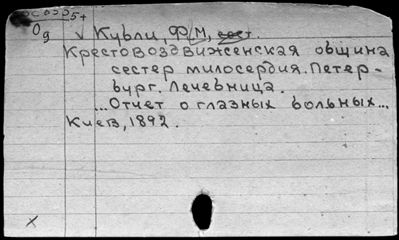 Од
√ Кубли, Ф/М, сост.
Крестовоздвиженская община
сестер милосердия. Петер-
бург. Лечебница.
...Отчет о глазных больных...
Киев, 1892.
х